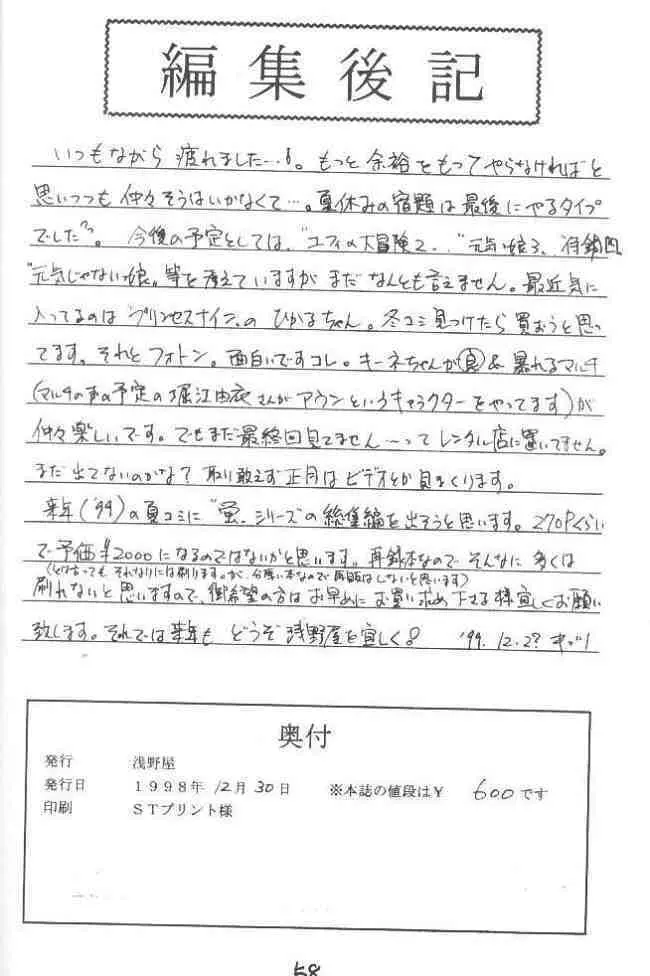 編集後記
いつもながら 疲れました…。もっと 余裕をもって やらなければと
思いつつも 仲々そうはいかなくて…。夏休みの宿題は最後にやるタイプ
でした。 今後の予定としては、"ユフィの大冒険2" "元気娘3
"元気じゃない娘" 等を考えていますが まだ なんとも言えません。最近気に
入ってるのは プリンセスナイン の ひかるちゃん。冬コミ見つけたら買おうと思っ
てます。それと フォトン。面白いですコレ。キーネちゃんが(良)& 暴れるマルチ
(マルチの声の予定の堀江由衣さんが アウンというキャラクターをやってます)が
仲々楽しいです。でもまだ最終回見てません…って レンタル店に置いてません。
まだ 出てないのかな? 取り敢えず 正月は ビデオとか 見まくります。
来年('99)の夏コミに "蛍"シリーズの総集編を出そうと思います。270Pくらい
で予価¥2000になるのではないかと思います。再録本なので そんなに 多くは
(とは言っても それなりには刷ります。が、分厚い本なので再版はしないと思います)
刷れないと思いますので、御希望の方は お早めに お買い求め下さる様宜しくお願い
致します。それでは来年も どうぞ 浅野屋を宜しく '99.12.2?
奥付
発行 浅野屋
発行日 1998年 12月 30日 ※本誌の値段は¥ 600です
印刷 STプリント様
58